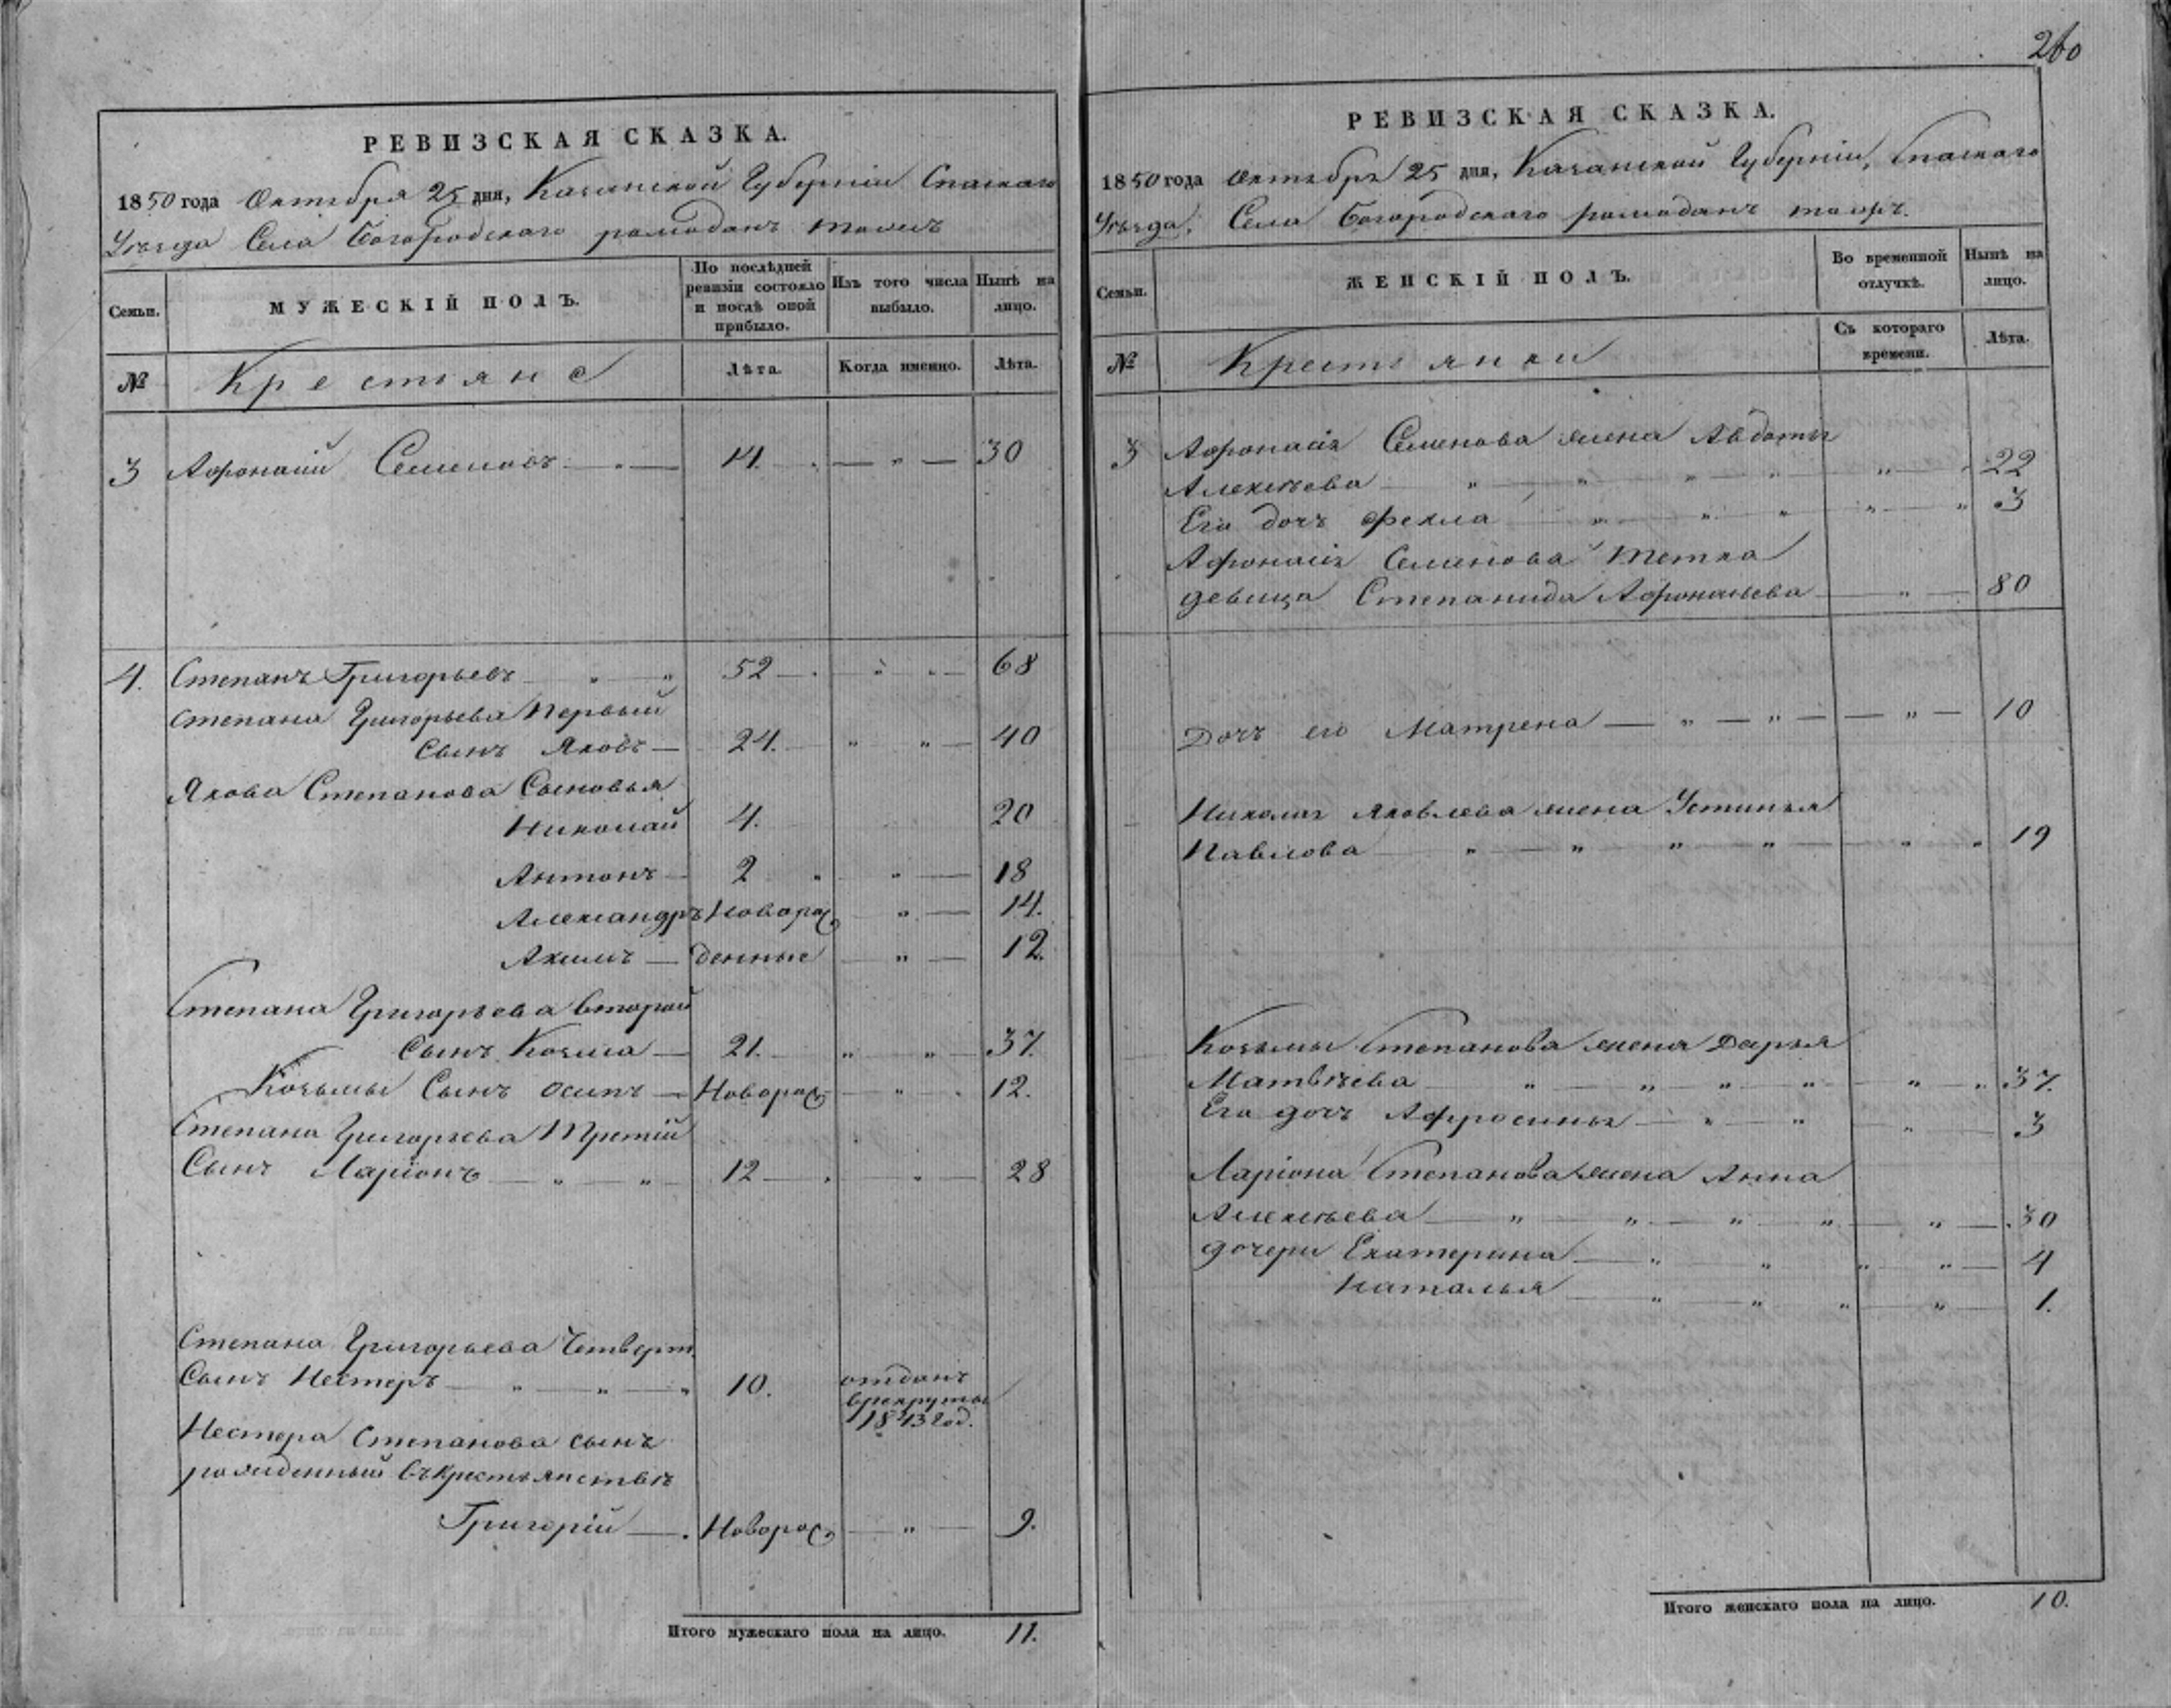 260
РЕВИЗСКАЯ СКАЗКА.
1850 года Октября 25 дня, Казанской Губерніи Спаскаго
Уѣзда Села Богородскаго ромоданъ тожъ
Семьи.
МУЖЕСКІЙ ПОЛЪ.
По послѣдней ревизіи состояло и послѣ оной прибыло.
Изъ того числа выбыло.
Нынѣ на лицо.
№
Крестьяне
Лѣта.
Когда именно.
Лѣта.
3 Афонасій Семеновъ — „ — 14. — „ — 30
4. Степанъ Григорьевъ — „ — „ 52 — „ „ — 68
Степана Григорьева Первый
Сынъ Яковъ — 24. — „ „ — 40
Якова Степанова Сыновья
Николай 4. 20
Антонъ — 2 „ — 18
Александръ Новорож „ — 14.
Акимъ — денные — „ — 12.
Степана Григорьева второй
Сынъ Козма — 21. — „ „ — 37.
Козьмы Сынъ Осипъ — Новорож — „ 12.
Степана Григорьева Третій
Сынъ Ларіонъ — „ — „ — 12 — „ — 28
Степана Григорьева Четверт.
Сынъ Нестеръ — „ — „ — „ 10. отданъ
врекруты
1843 год.
Нестера Степанова сынъ
рожденный въкрестьянствѣ
Григорій — Новорож — „ — 9.
Итого мужескаго пола на лицо. 11.
РЕВИЗСКАЯ СКАЗКА.
1850 года Октября 25 дня, Казанской Губерніи, Спаскаго
Уѣзда, Села Богородскаго ромоданъ тожъ.
Семьи.
ЖЕНСКІЙ ПОЛЪ.
Во временной отлучкѣ.
Нынѣ на лицо.
№
Крестьянки
Съ котораго времени.
Лѣта.
3 Афонасія Семенова жена Авдотья
Алексѣева — „ — „ — „ — „ — „ — 22
Его дочь Фекла — „ — „ — „ — „ — „ 3
Афонасія Семенова тетка
девица Степанида Афонасьева — „ — 80
Дочь его Матрена — „ — „ — „ — 10
Николая Яковлева жена Устинья
Павлова — „ — „ — „ — „ — „ „ 19
Козьмы Степанова жена Дарья
Матвѣева — „ — „ — „ — „ — „ — „ 37.
Его дочь Афросинья — „ — „ — „ — 3
Ларіона Степанова жена Анна
Алексѣева — „ — „ — „ — „ — „ — 30
дочери Екатерина — „ — „ — „ „ — 4
Наталья — „ — „ — „ — „ — 1.
Итого женскаго пола на лицо. 10.